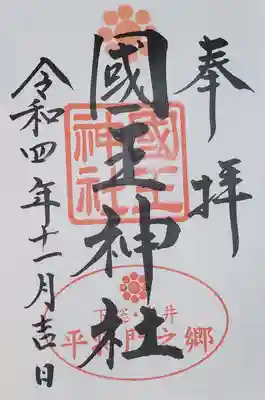 奉拝
國王神社
令和四年十一月吉日
國王神社
平将門之郷